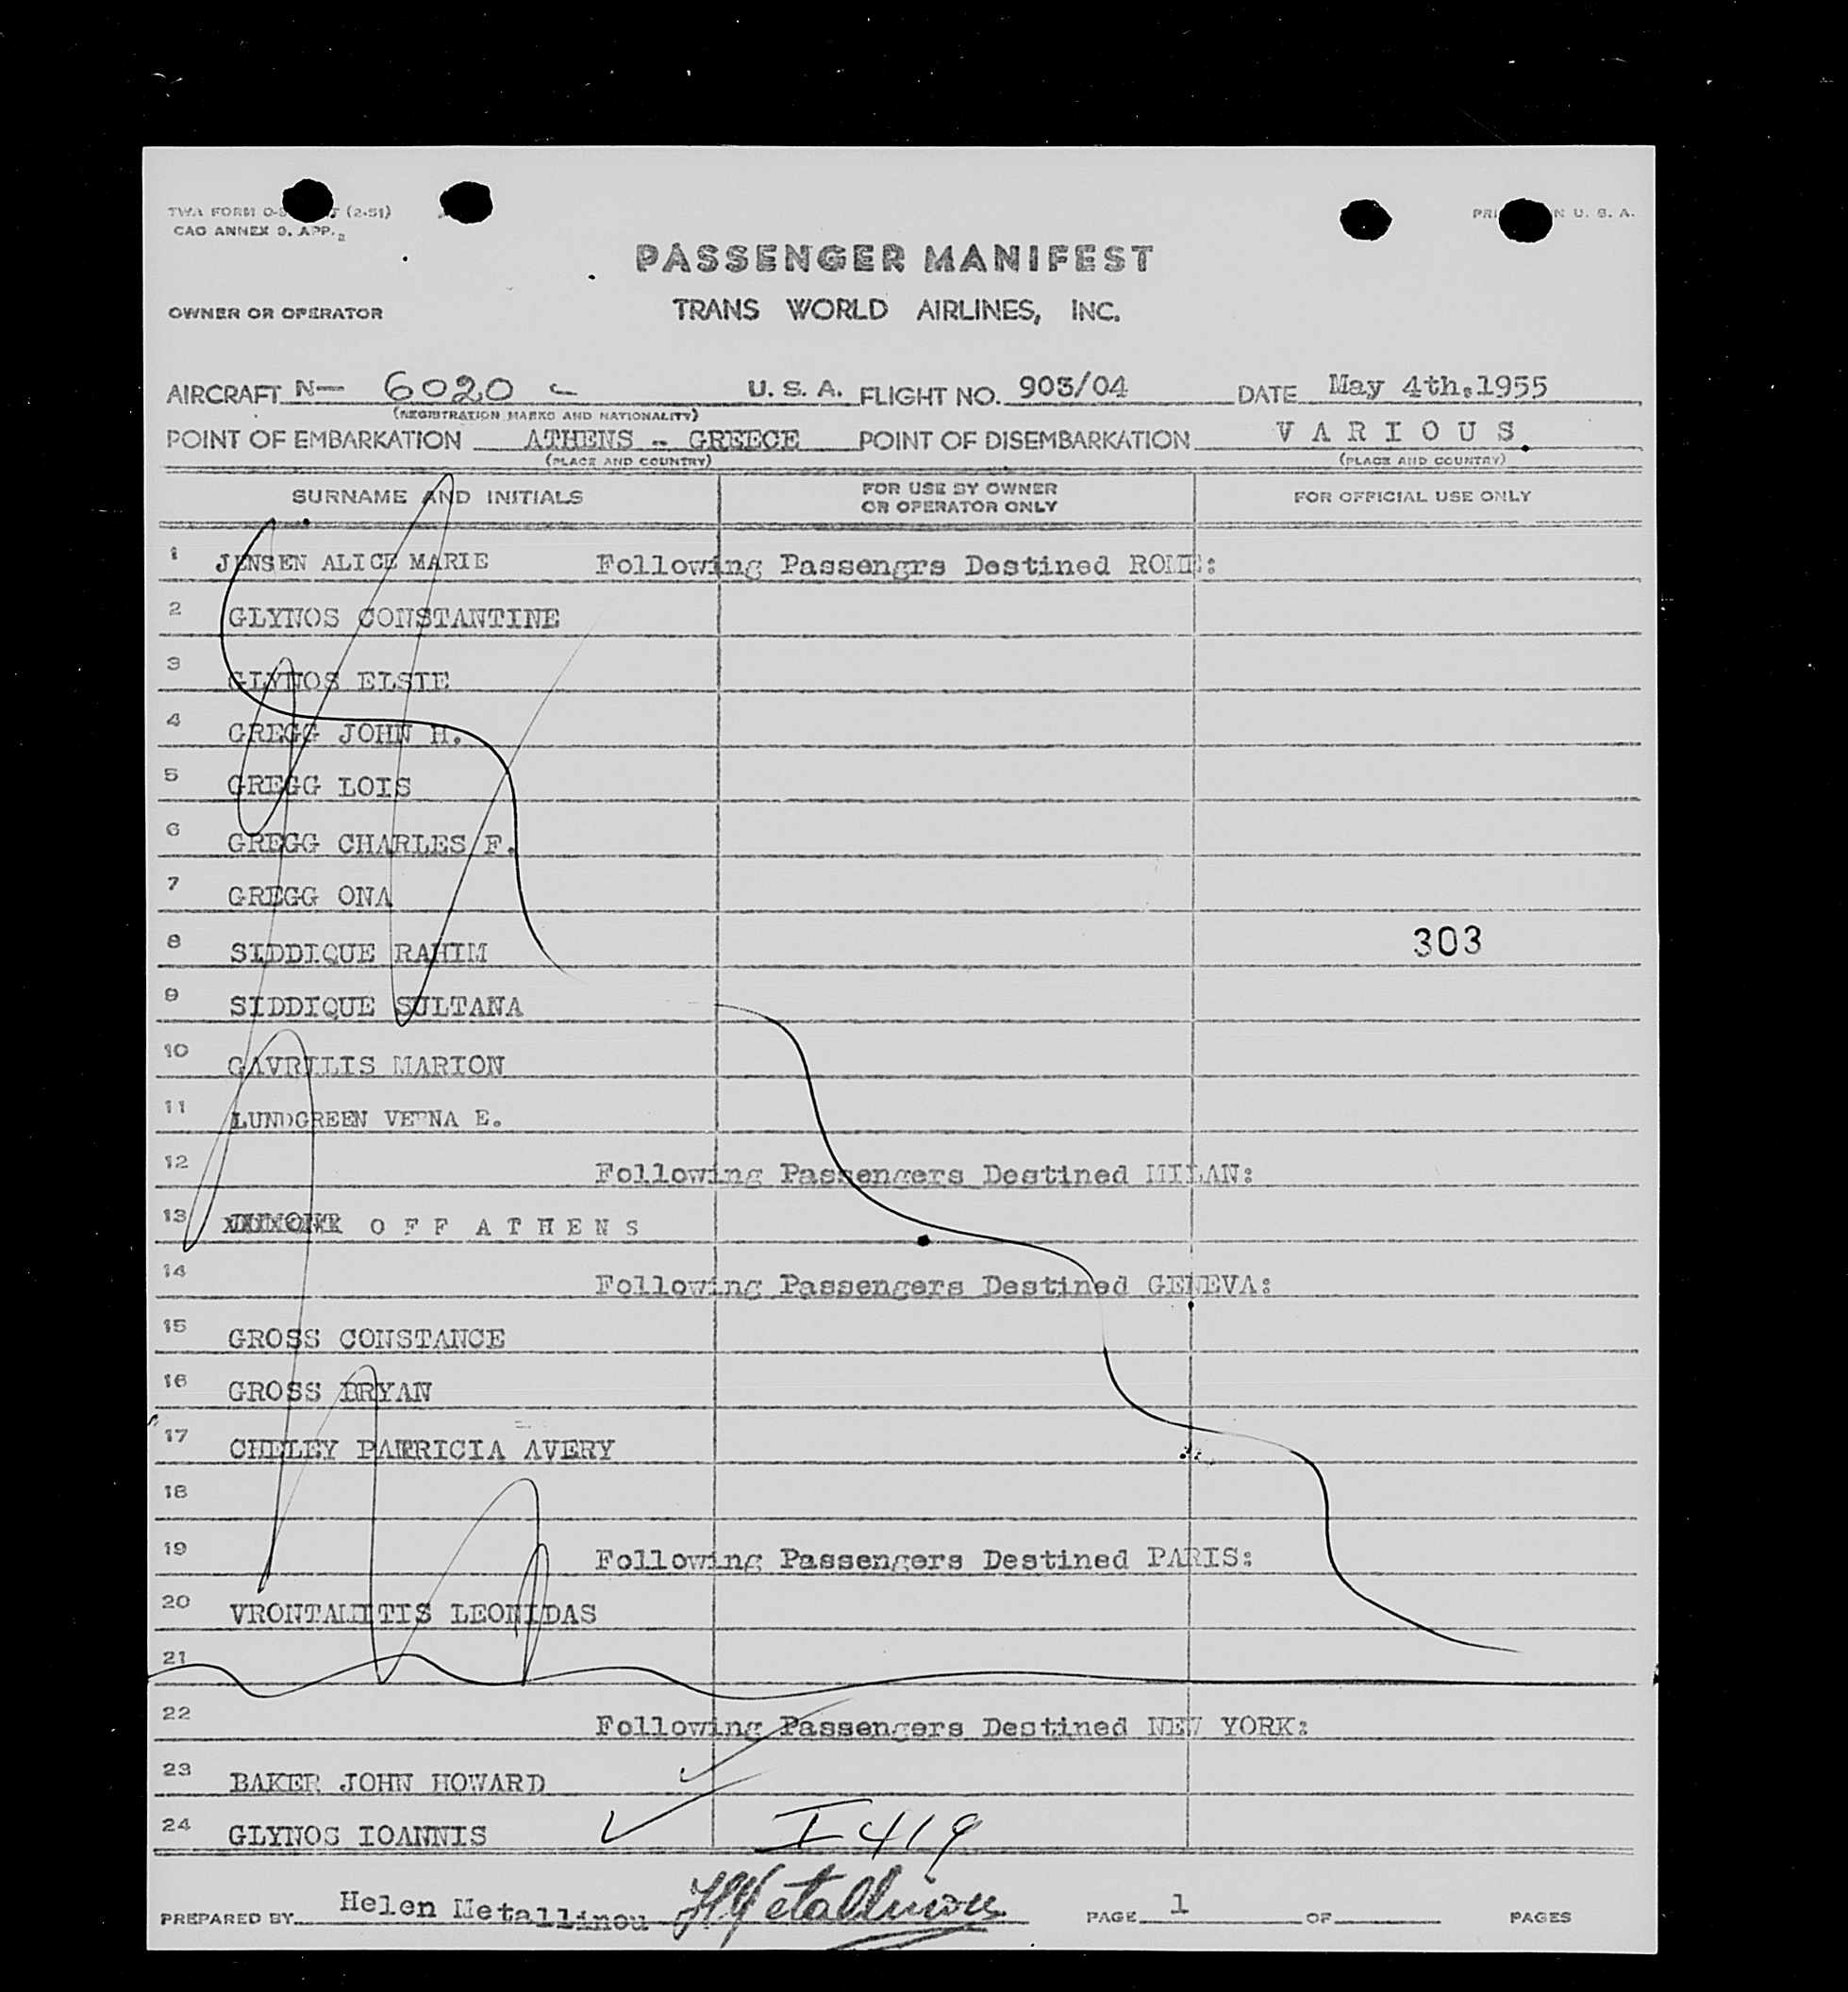 TWA FORM O- (2-51)
CAO ANNEX 9. APP. 2
U. S. A.
PASSENGER MANIFEST
OWNER OR OPERATOR
TRANS WORLD AIRLINES, INC.
AIRCRAFT N- 6020 U. S. A. FLIGHT NO. 903/04 DATE May 4th,1955
(REGISTRATION MARKS AND NATIONALITY)
POINT OF EMBARKATION ATHENS - GREECE POINT OF DISEMBARKATION V A R I O U S.
(PLACE AND COUNTRY) (PLACE AND COUNTRY)
SURNAME AND INITIALS FOR USE BY OWNER OR OPERATOR ONLY FOR OFFICIAL USE ONLY
1 JENSEN ALICE MARIE Following Passengrs Destined ROME:
2 GLYNOS CONSTANTINE
3 GLYNOS ELSIE
4 GREGG JOHN H.
5 GREGG LOIS
6 GREGG CHARLES F.
7 GREGG ONA
8 SIDDIQUE RAHIM 303
9 SIDDIQUE SULTANA
10 GAVRILIS MARION
11 LUNDGREEN VERNA E.
12 Following Passengers Destined MILAN:
13 O F F A T H E N S
14 Following Passengers Destined GENEVA:
15 GROSS CONSTANCE
16 GROSS BRYAN
17 PATRICIA AVERY
18
19 Following Passengers Destined PARIS:
20 LEONIDAS
21
22 Following Passengers Destined NEW YORK:
23 BAKER JOHN HOWARD
24 GLYNOS IOANNIS I 419
PREPARED BY Helen Metallinou HMetallinou PAGE 1 OF PAGES